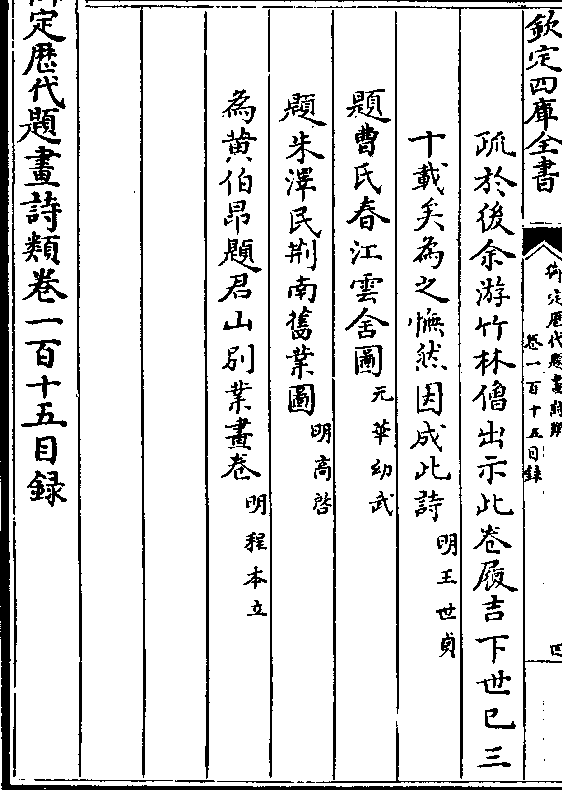 欽定四庫全書
御定歴代題畫詩類
卷一百十五目録
四
疏於後余游竹林僧出示此卷履吉下世已三
十載矣為之憮然因成此詩明王世貞
題曹氏春江雲舍圖元華幼武
題朱澤民荆南舊業圖明高啓
為黄伯昂題君山别業畫卷明程本立
御定歴代題畫詩類卷一百十五目録